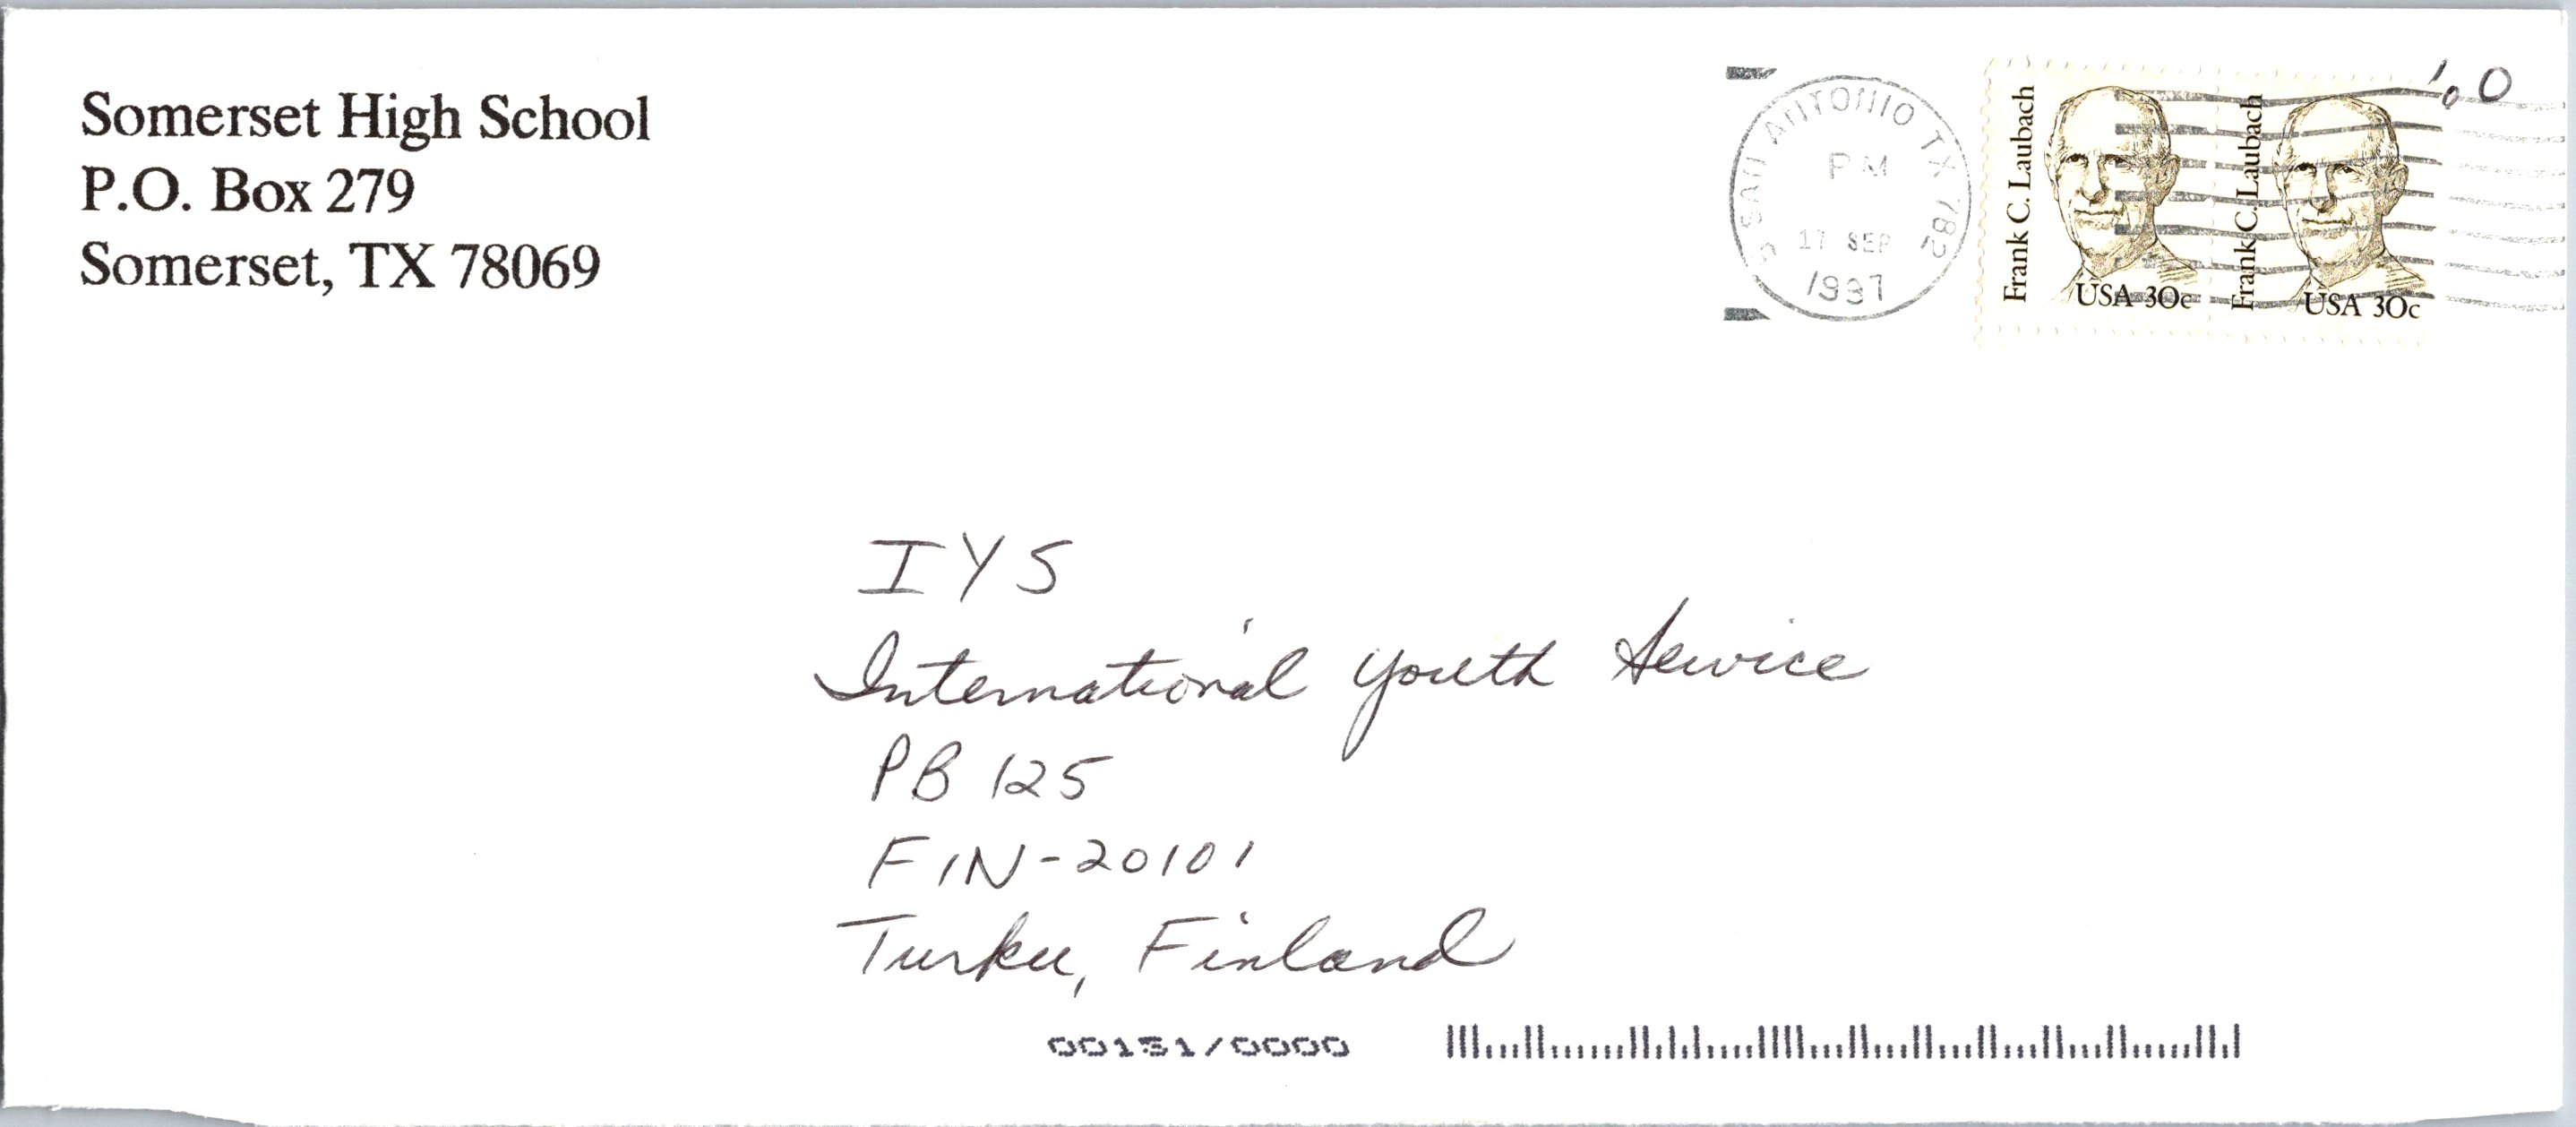 Somerset High School
P.O. Box 279
Somerset, TX 78069
SAN ANTONIO TX 782
PM
17 SEP
1997
Frank C. Laubach
USA 30c
Frank C. Laubach
USA 30c
IYS
International Youth Service
PB 125
FIN-20101
Turku, Finland
00151/0000